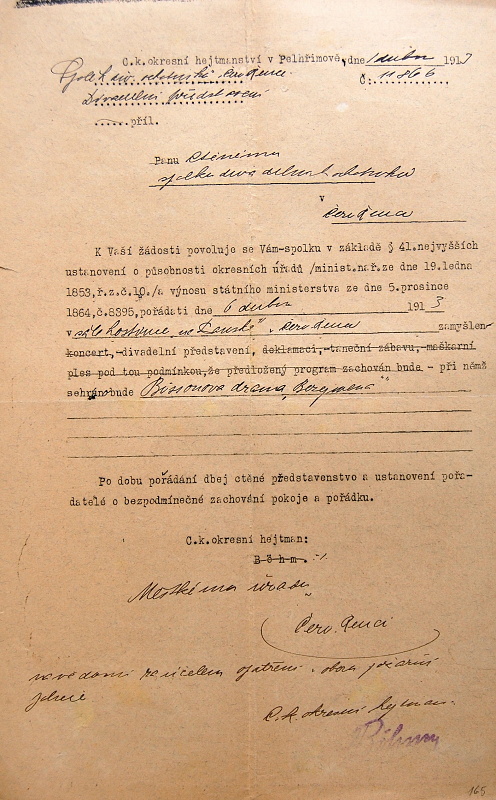 C.k.okresní hejtmanství v Pelhřimově, dne 1 dubna 1913
Č: 11866
Divadelní představení
příl.
Panu
spolku divadelních ochotníků
v
K Vaší žádosti povoluje se Vám-spolku v základě § 41.nejvyšších
ustanovení o působnosti okresních úřadů /minist.nař.ze dne 19.ledna
1853,ř.z.č.10./a výnosu státního ministerstva ze dne 5.prosince
1864,č.8395,pořádati dne 6 dubna 1913
v sále hostince „na zamýšlen-
koncert,-divadelní představení, deklamaci,-taneční zábavu,-maškarní
ples pod tou podmínkou,že předložený program zachován bude - při němž
sehrán bude Bissonova drama
Po dobu pořádání dbej ctěné představenstvo a ustanovení pořa-
datelé o bezpodmínečné zachování pokoje a pořádku.
C.k.okresní hejtman:
Böhm.
Městskému úřadu
Červ.
na vědomí za účelem opatření
C.k. okresní hejtman.
Böhm
165